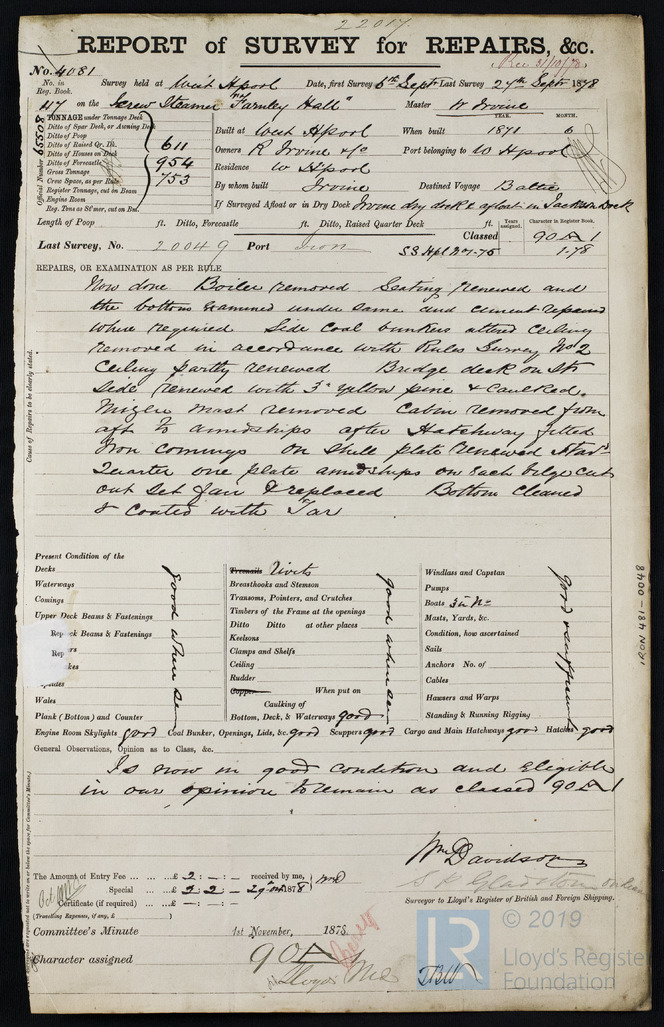 22017.
REPORT of SURVEY for REPAIRS, &c.
Rec 31/10/78
No. 4081
No. in Reg. Book.
Survey held at West Hpool Date, first Survey 6th Sept Last Survey 27th Sept 1878
417 on the Screw Steamer "Farnley Hall" Master W Irvine
TONNAGE under Tonnage Deck
Ditto of Spar Deck, or Awning Deck
Ditto of Poop
Ditto of Raised Qr. Dk. 611
Ditto of Houses on Deck
Ditto of Forecastle 954
Gross Tonnage
Crew Space, as per Rule 753
Register Tonnage, cut on Beam
Engine Room
Reg. Tons as St'mer, cut on Bm.
Official Number 65508
Built at West Hpool When built 1871 6
YEAR. MONTH.
Owners R Irvine & Co Port belonging to W Hpool
Residence W Hpool
By whom built Irvine Destined Voyage Baltic
If Surveyed Afloat or in Dry Dock Irvine dry dock & afloat in Jackson Dock
Length of Poop ft. Ditto, Forecastle ft. Ditto, Raised Quarter Deck ft.
Years assigned. Character in Register Book.
Classed 90 A 1
Last Survey, No. 20049 Port Iron
SS Hpl No 1-75 1-78
REPAIRS, OR EXAMINATION AS PER RULE
Cause of Repairs to be clearly stated.
Now done Boiler removed Seating renewed and
the bottom examined under same and cement repaired
where required Side Coal bunkers altered Ceiling
removed in accordance with Rules Survey No 2
Ceiling partly renewed Bridge deck on Std
side renewed with 3" Yellow pine & Caulked.
Mizen mast removed Cabin removed from
aft to amidships after Hatchway fitted
Iron comings On Shell plate renewed Star'd
Quarter one plate amidships on each bilge cut
out Set fair & replaced Bottom Cleaned
& Coated with Tar
Present Condition of the
Decks
Waterways
Comings
Upper Deck Beams & Fastenings
Beams & Fastenings
Wales
Plank (Bottom) and Counter
good when seen
Treenails Rivits
Breasthooks and Stemson
Transoms, Pointers, and Crutches
Timbers of the Frame at the openings
Ditto Ditto at other places
Keelsons
Clamps and Shelfs
Ceiling
Rudder
Copper When put on
Caulking of
Bottom, Deck, & Waterways good
good when seen
Windlass and Capstan
Pumps
Boats 3 in No
Masts, Yards, &c.
Condition, how ascertained
Sails
Anchors No. of
Cables
Hawsers and Warps
Standing & Running Rigging
good & sufficient
Engine Room Skylights good Coal Bunker, Openings, Lids, &c. good Scuppers good Cargo and Main Hatchways good Hatches good
General Observations, Opinion as to Class, &c.
Is now in good condition and Eligible
in our opinion to remain as classed 90 A 1
Wm Davidson
Surveyor to Lloyd's Register of British and Foreign Shipping.
The Amount of Entry Fee £ 2 : - : - received by me,
Special £ 2 2 - 29th Oct 1878 WmD
Certificate (if required) - : - : -
(Travelling Expenses, if any, £ )
Committee's Minute 1st November, 1878
Character assigned 90 A 1
Lloyds Mc
TBW
IRON 481-0048
LR
© 2019
Lloyd's Register
Foundation